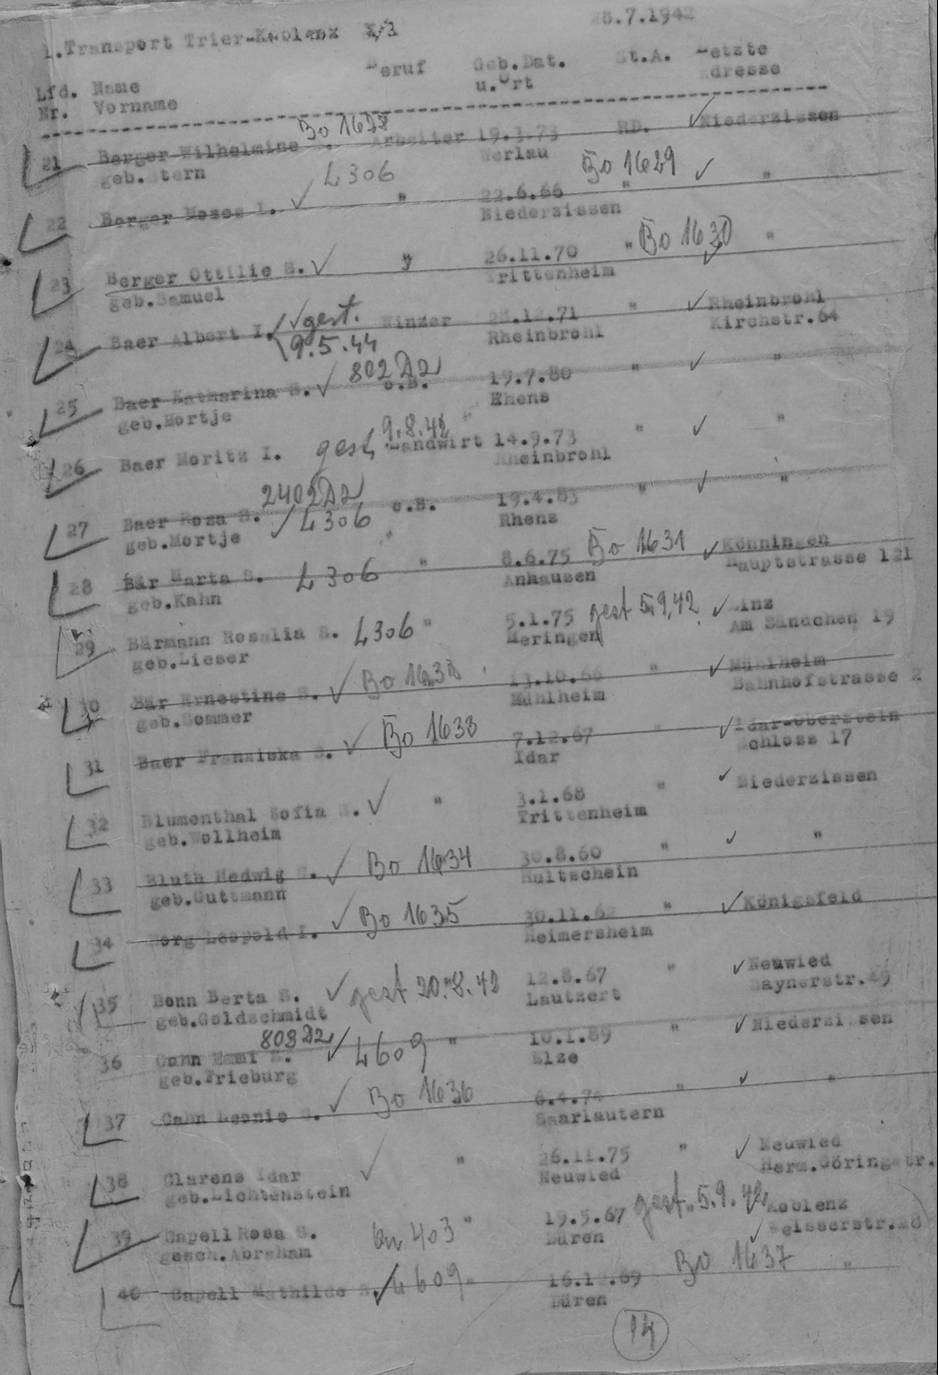 1.Transport Trier-Koblenz X/1 28.7.1942
Lfd. Name Beruf Geb.Dat. St.A. Letzte
Nr. Vorname u.Ort Adresse
Bo 1628
21 Berger Wilhelmine S. Arbeiter 19.3.73 RD. Niederzissen
geb.Stern Werlau
L306 Bo 1629
22 Berger Moses I. " 22.6.66 " "
Niederzissen
23 Berger Ottilie S. " 26.11.70 " Bo 1630 "
geb.Samuel Trittenheim
24 Baer Albert I. gest. Winzer 28.12.71 " Rheinbrohl
9.5.44 Rheinbrohl Kirchstr.64
802 Dz
25 Baer Katharina S. o.B. 19.7.80 " "
geb.Mortje Rhens
9.8.42 "
26 Baer Moritz I. gest. Landwirt 14.9.73 " "
Rheinbrohl
2402 Dz
27 Baer Rosa S. L306 o.B. 19.4.83 " "
geb.Mortje Rhens
28 Bär Marta S. L306 " 8.6.75 Bo 1631 Hönningen
geb.Kahn Anhausen Hauptstrasse 121
29 Bärmann Rosalia S. L306 " 5.1.75 gest 5.9.42 Linz
geb.Lieser Meringen Am Sändchen 19
30 Bär Ernestine S. Bo 13.10.66 " Mühlheim
geb.Sommer Mühlheim Bahnhofstrasse 2
31 Baer Franziska S. Bo 1633 7.12.67 " Idar-Oberstein
Idar Schloss 17
32 Blumenthal Sofia S. " 3.1.68 " Niederzissen
geb.Wollheim Trittenheim
33 Bluth Hedwig S. Bo 1634 30.8.60 " "
geb.Guttmann Hultschein
34 Borg Leopold I. Bo 1635 30.11.62 " Königsfeld
Heimersheim
35 Bonn Berta S. gest 20.8.42 12.8.67 " Neuwied
geb.Goldschmidt Lautzert Raynerstr.49
808 Dz
36 Cahn Emmi S. L609 " 10.1.89 " Niederzissen
geb.Frieburg Elze
37 Cahn Leonie S. Bo 1636 6.4.74 " "
Saarlautern
38 Clarens Idar " 26.11.75 " Neuwied
geb.Lichtenstein Neuwied Herm.Göringstr.
39 Capell Rosa S. 403 " 19.5.67 gest. 5.9.42 Koblenz
gesch.Abraham Düren Weisserstr.28
40 Capell Mathilde S. L609 " 16.12.69 Bo 1637 "
Düren
14